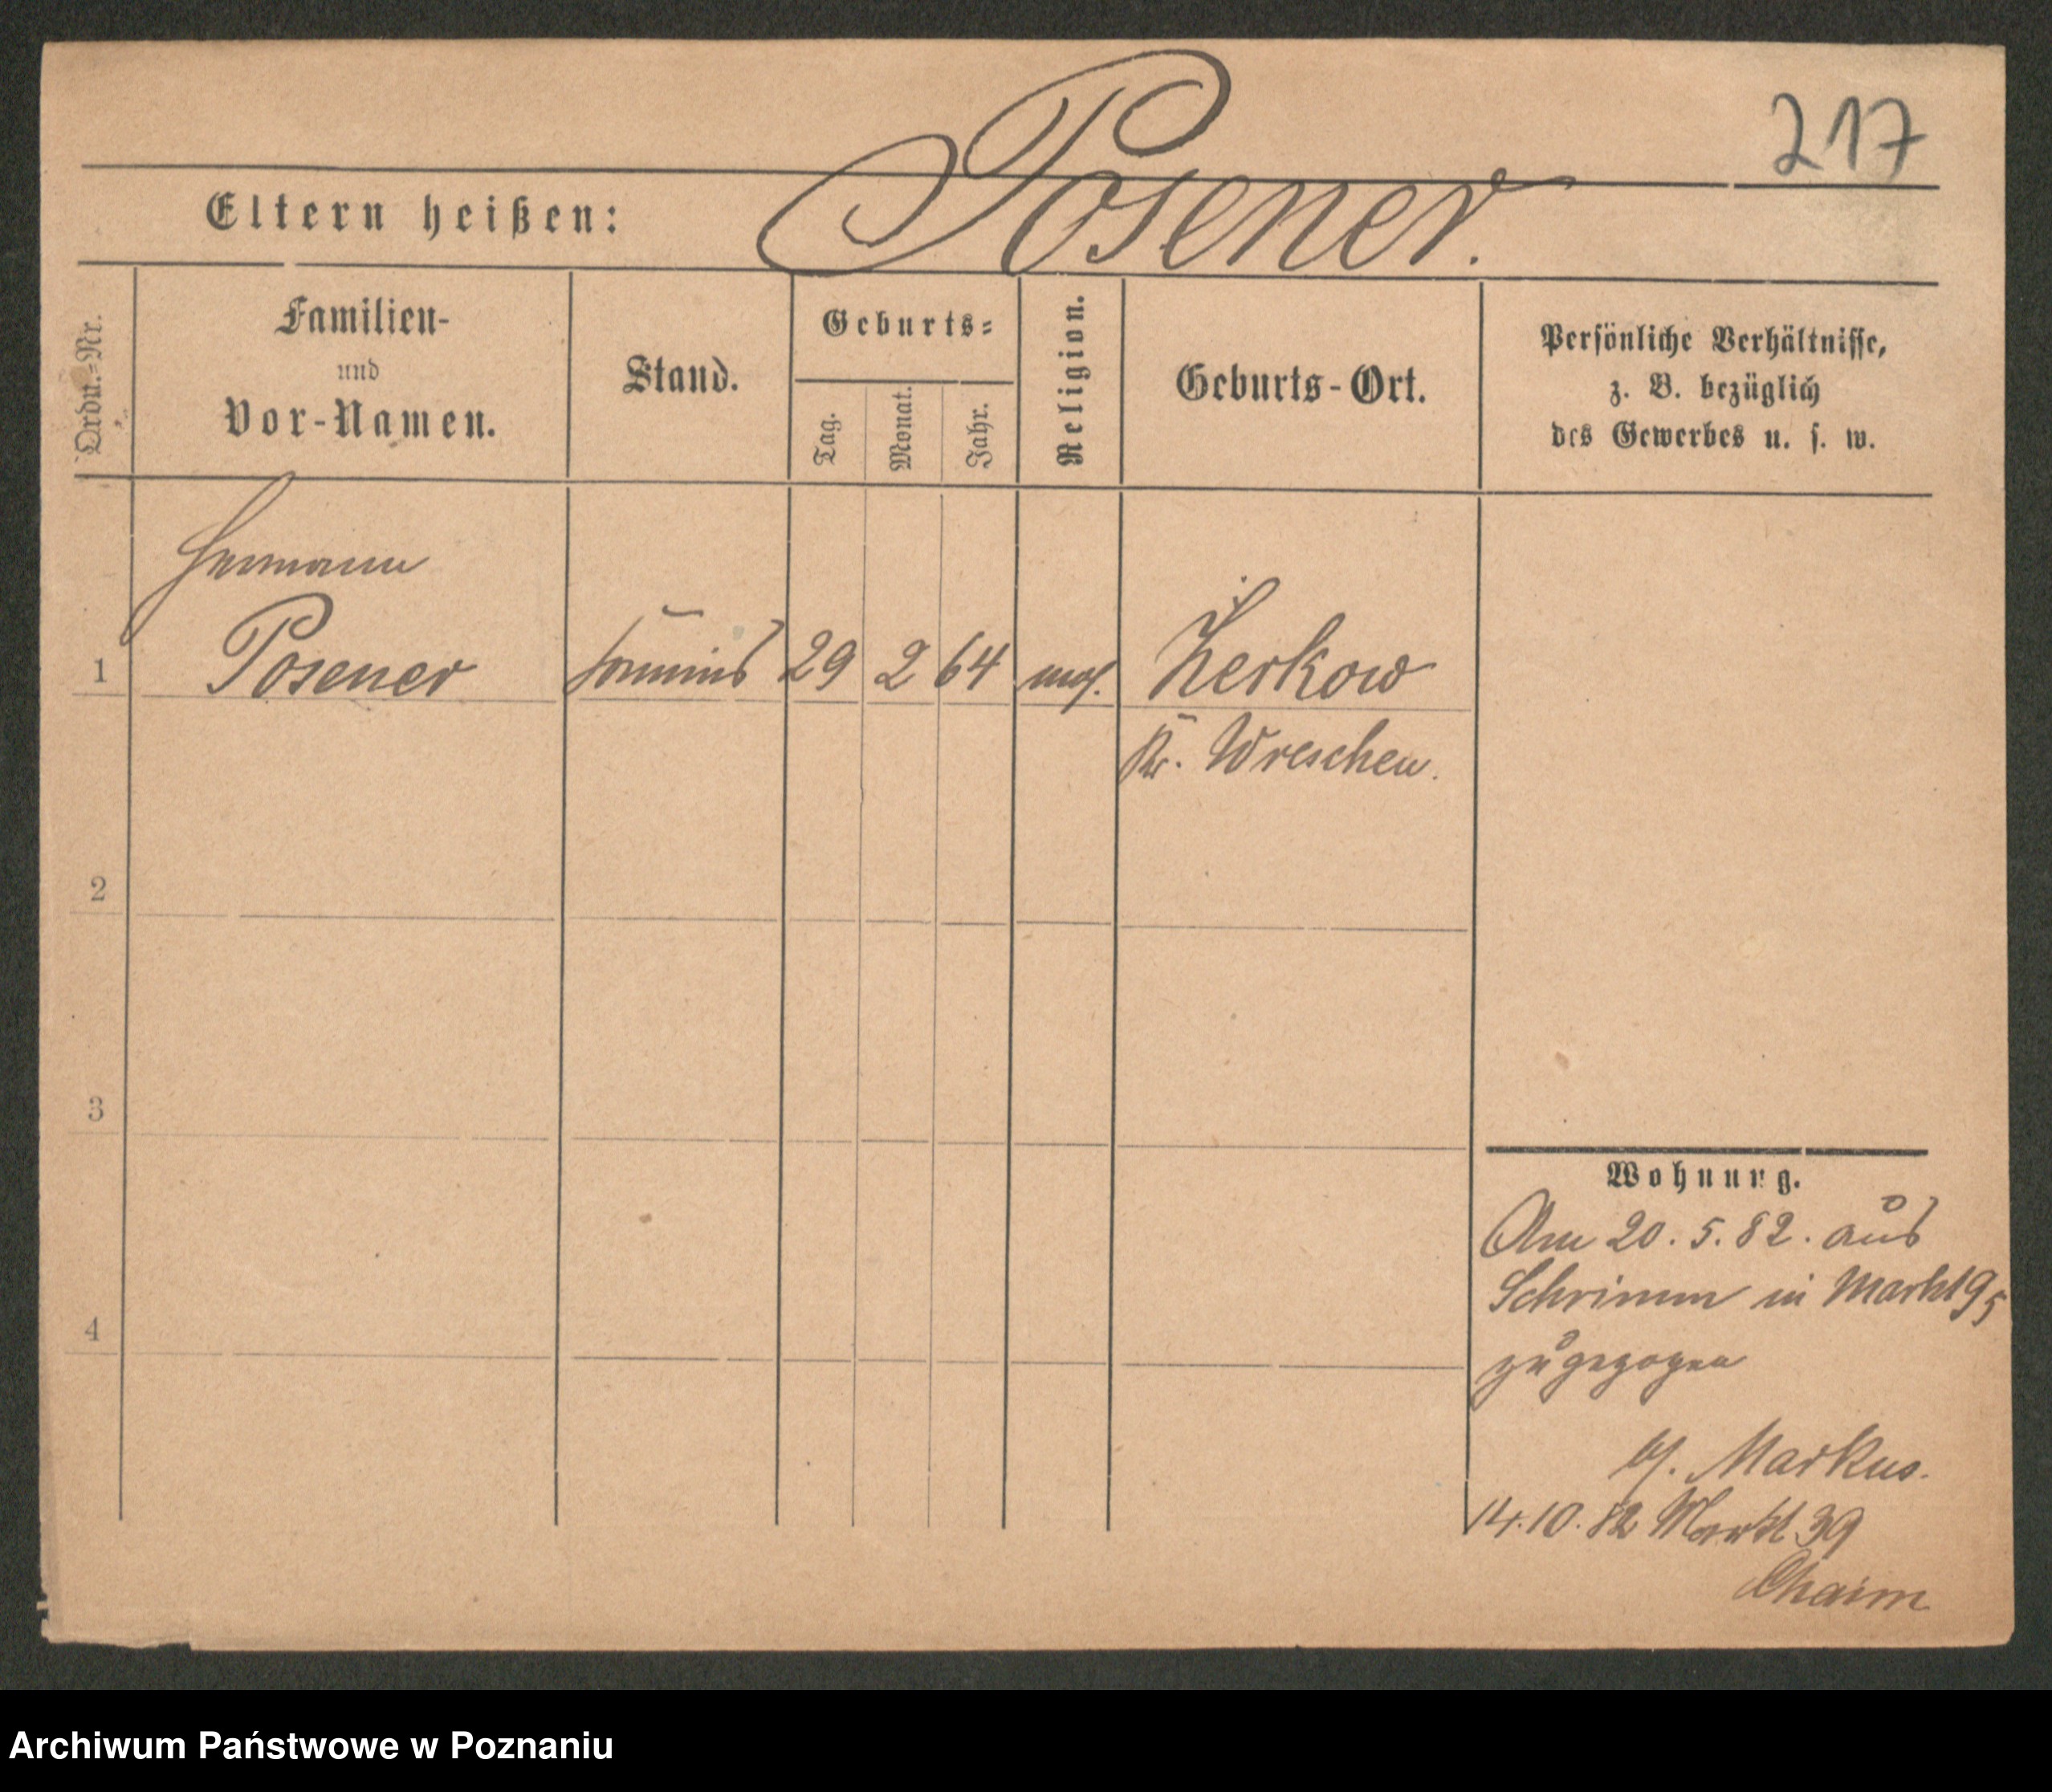 217
Posener.
Eltern heißen:
Ordn.=Nr.
Familien-
und
Vor-Namen.
Stand.
Geburts=
Tag.
Monat.
Jahr.
Religion.
Geburts-Ort.
Persönliche Verhältnisse,
z. B. bezüglich
des Gewerbes u. s. w.
Hermann
1 Posener Commis 29 2 64 mos. Żerkow
Kr. Wreschen.
2
3
4
Wohnung.
Am 20. 5. 82. aus
Schrimm in Markt 95
zugezogen
b/. Markus.
14. 10. 82 Markt 39
Chaim
Archiwum Państwowe w Poznaniu